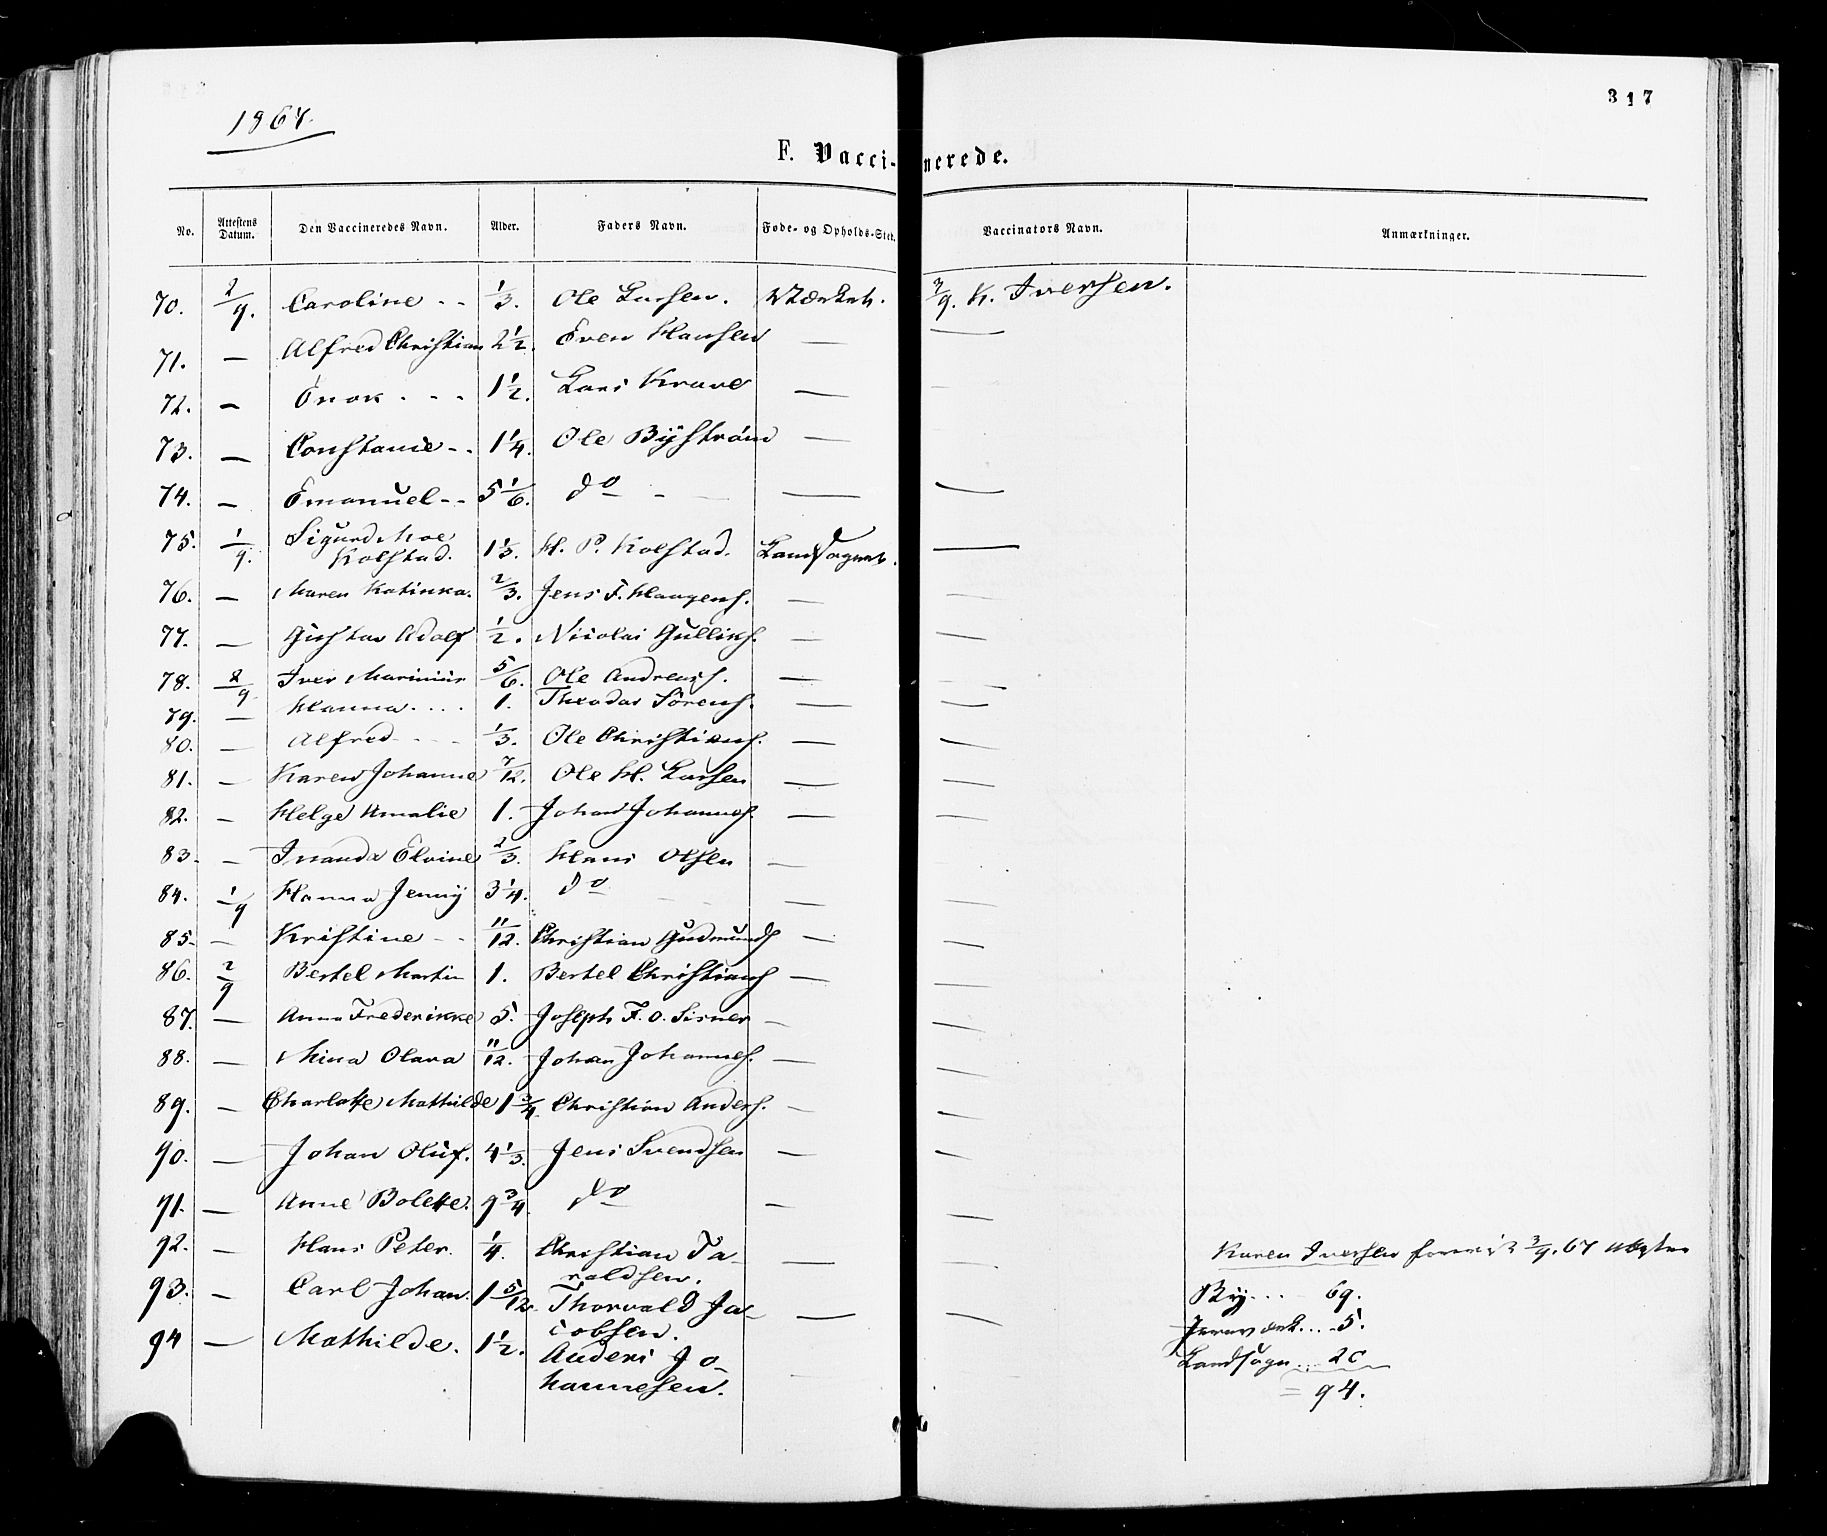 317
1867.
F. Vaccinerede.
No. Attestens Datum. Den Vaccineredes Navn. Alder. Faders Navn. Føde- og Opholds-Sted. Vaccinators Navn. Anmærkninger.
70. 2/9. Caroline - - 1/3. Ole Larsen. Værket. 3/9. K. Iversen.
71. — Alfred Christian 2 1/2. Even Hansen — —
72. — Enok - - - 1 1/2. Lars Krave —
73. — Constance - - 1 1/4. Ole Byström —
74. — Emanuel - - 5 1/6. do - — —
75. 1/9. Sigurd Moe Kolstad. 1 1/3. H. P. Kolstad. Landsognet. —
76. — Maren Katinka. 2/3. Jens F. Haagens. — —
77. — Gustav Adolf 1/2. Nicolai Gulliks. — —
78. 2/9. Iver Marinius 5/6. Ole Andreas. — —
79. — Hanna . . . . 1. Theodor Sörens. — —
80. — Alfred - - - 1/3. Ole Christians. — —
81. — Karen Johanne 7/12. Ole H. Larsen — —
82. — Helge Amalie 1. Johan Johannes. — —
83. — Inanda Elvine 2/3. Hans Olsen — —
84. 1/9 Hanna Jenny 3 1/4. do — —
85. — Kristine - - 11/12. Christian Gudmunds — —
86. 2/9 Bertel Martin 1. Bertel Christians — —
87. — Anna Frederikke 5. Joseph F. O. Sisner — —
88. — Mina Olava 11/12. Johan Johannes. — —
89. — Charlotte Mathilde 1 3/4. Christian Anders. — —
90. — Johan Oluf. 4 1/3. Jens Svendsen — —
91. — Anne Bolette. 9 3/4. do — —
92. — Hans Peter. 1/4. Christian Taraldsen. — — Karen Iversen 3/9. 67
93. — Carl Johan. 1 5/12. Thorvald Jacobsen. — — By . . . - 69.
94 — Mathilde. 1 1/2. Anders Johannesen.
Jernværk . . . 5.
Landsogn . . . 20
= 94.